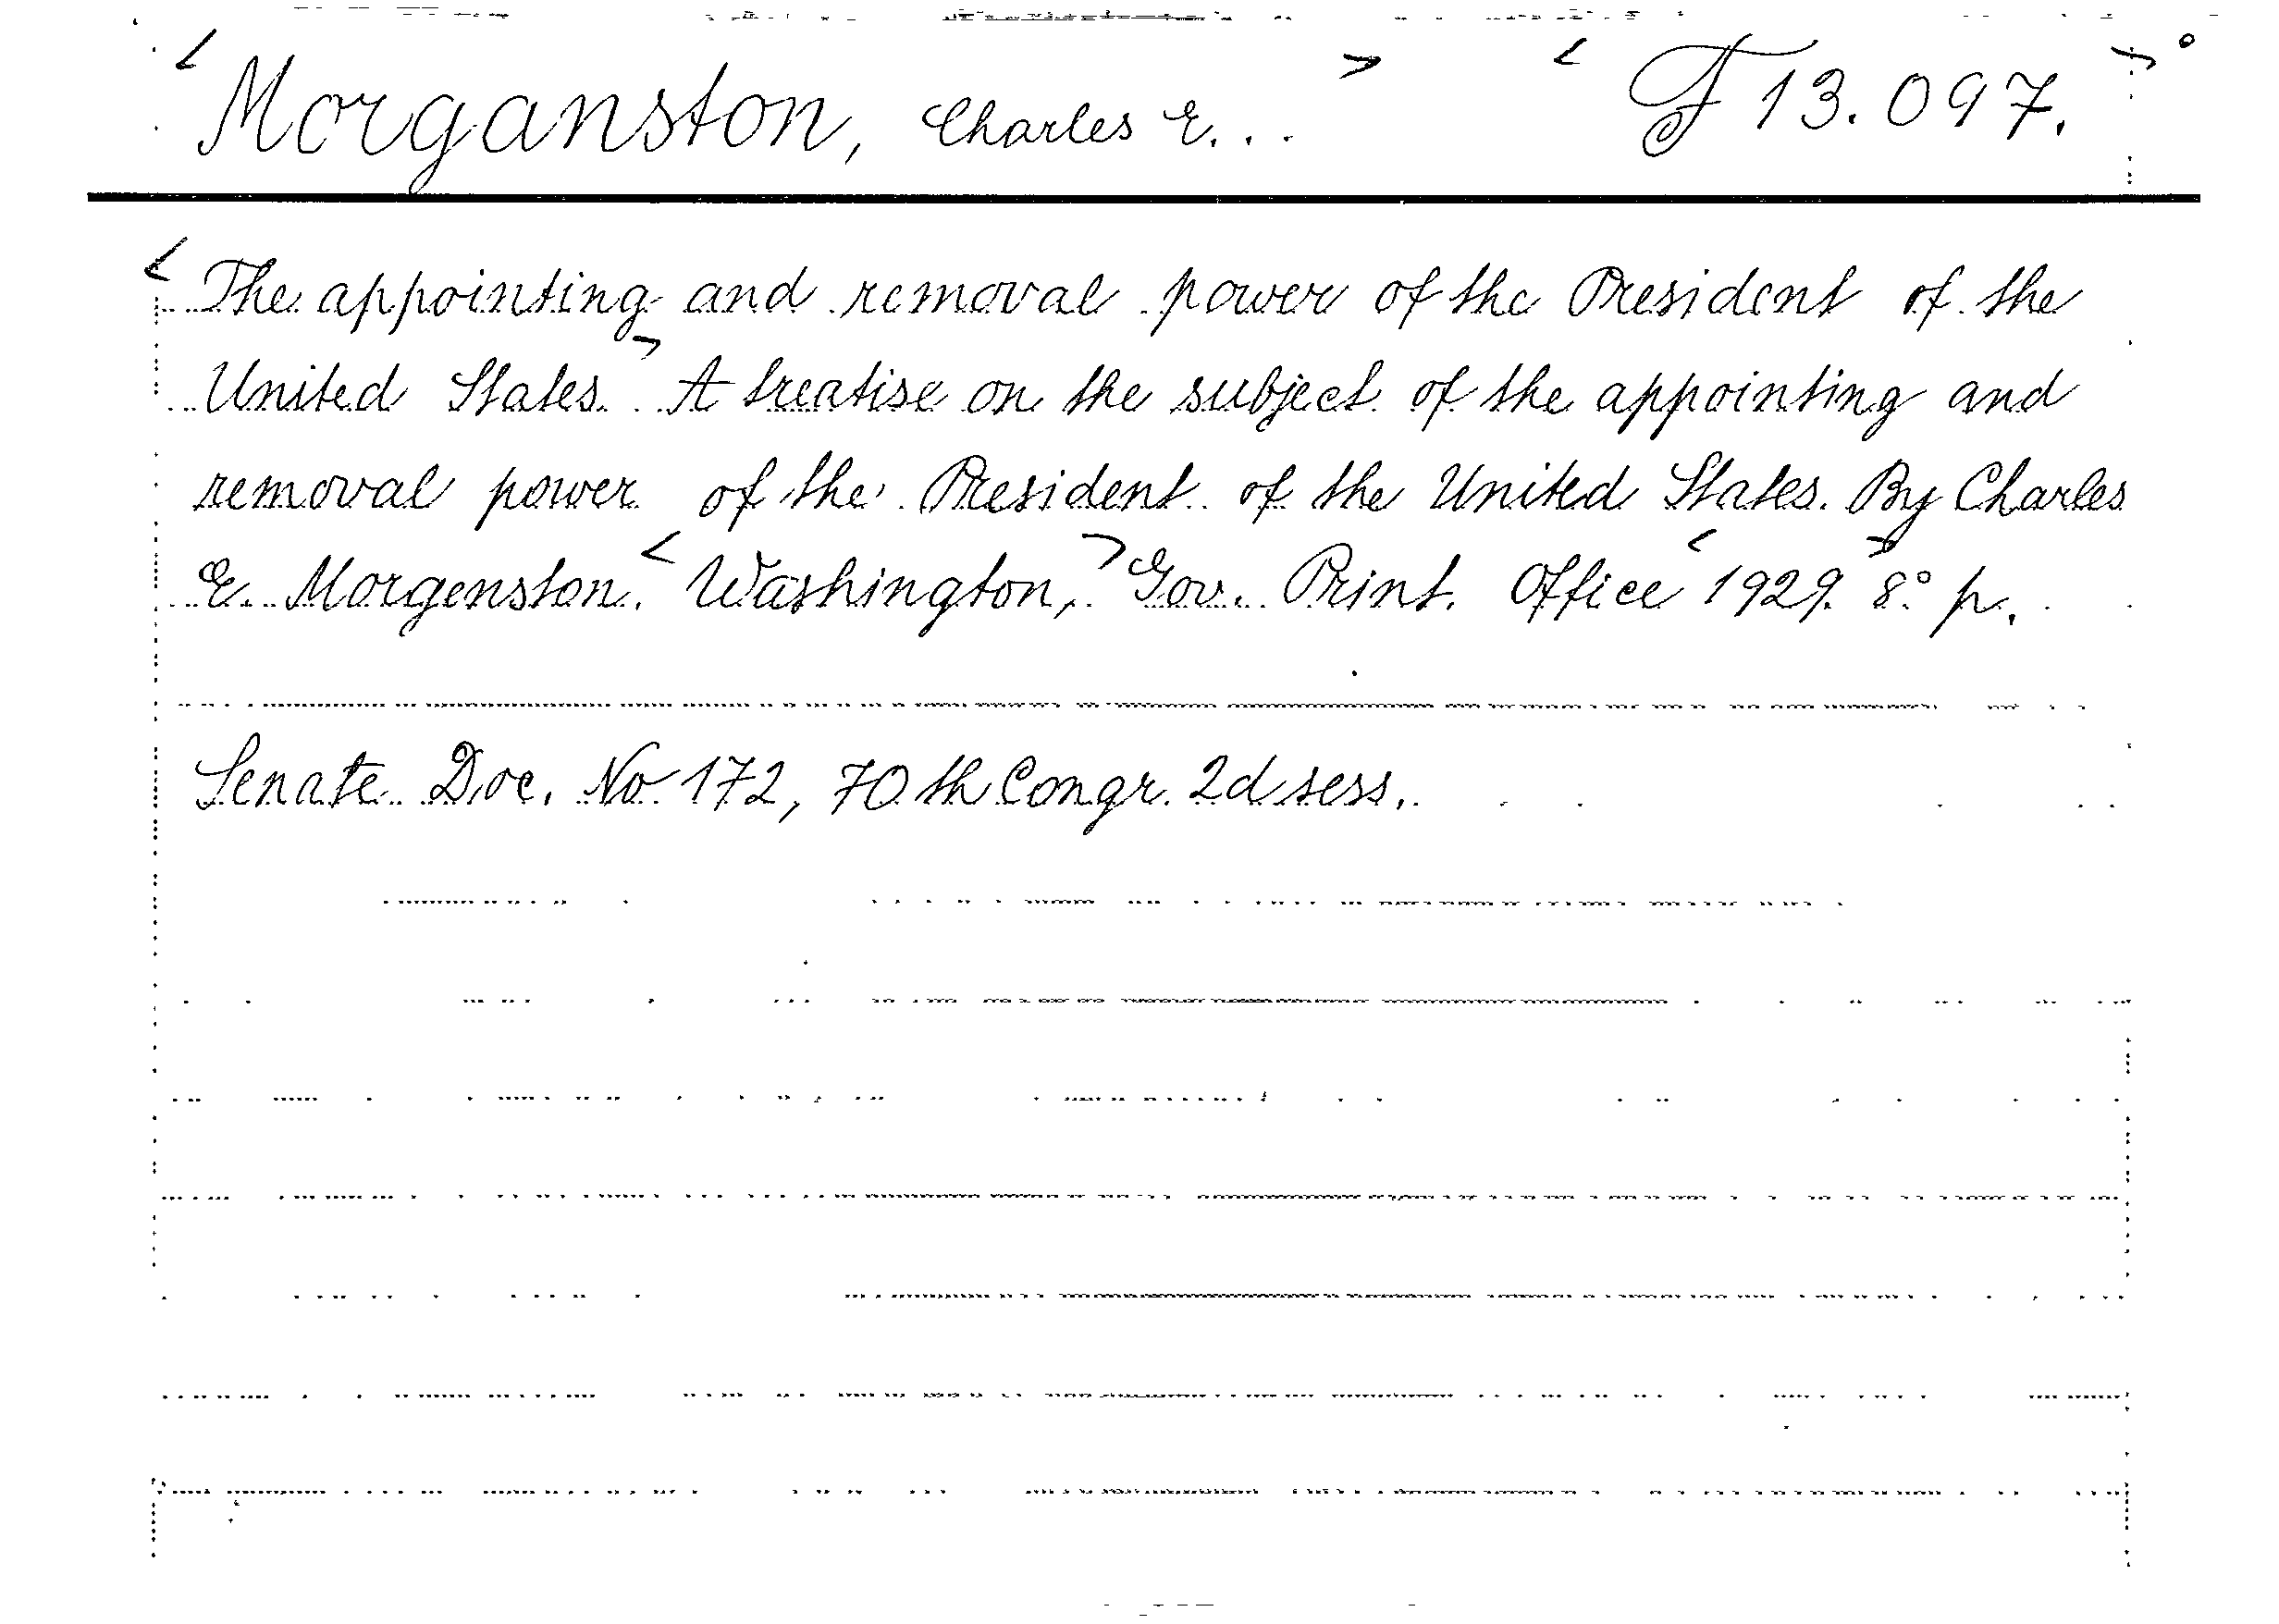 < Morganston, Charles E... > < F 13.097. >
< The appointing and removal power of the President of the
United States. > A treatise on the subject of the appointing and
removal power of the President of the United States. By Charles
E. Morgenston. < Washington, > Gov. Print. Office < 1929. > 8° p.
Senate Doc. No 172, 70th Congr. 2d sess.